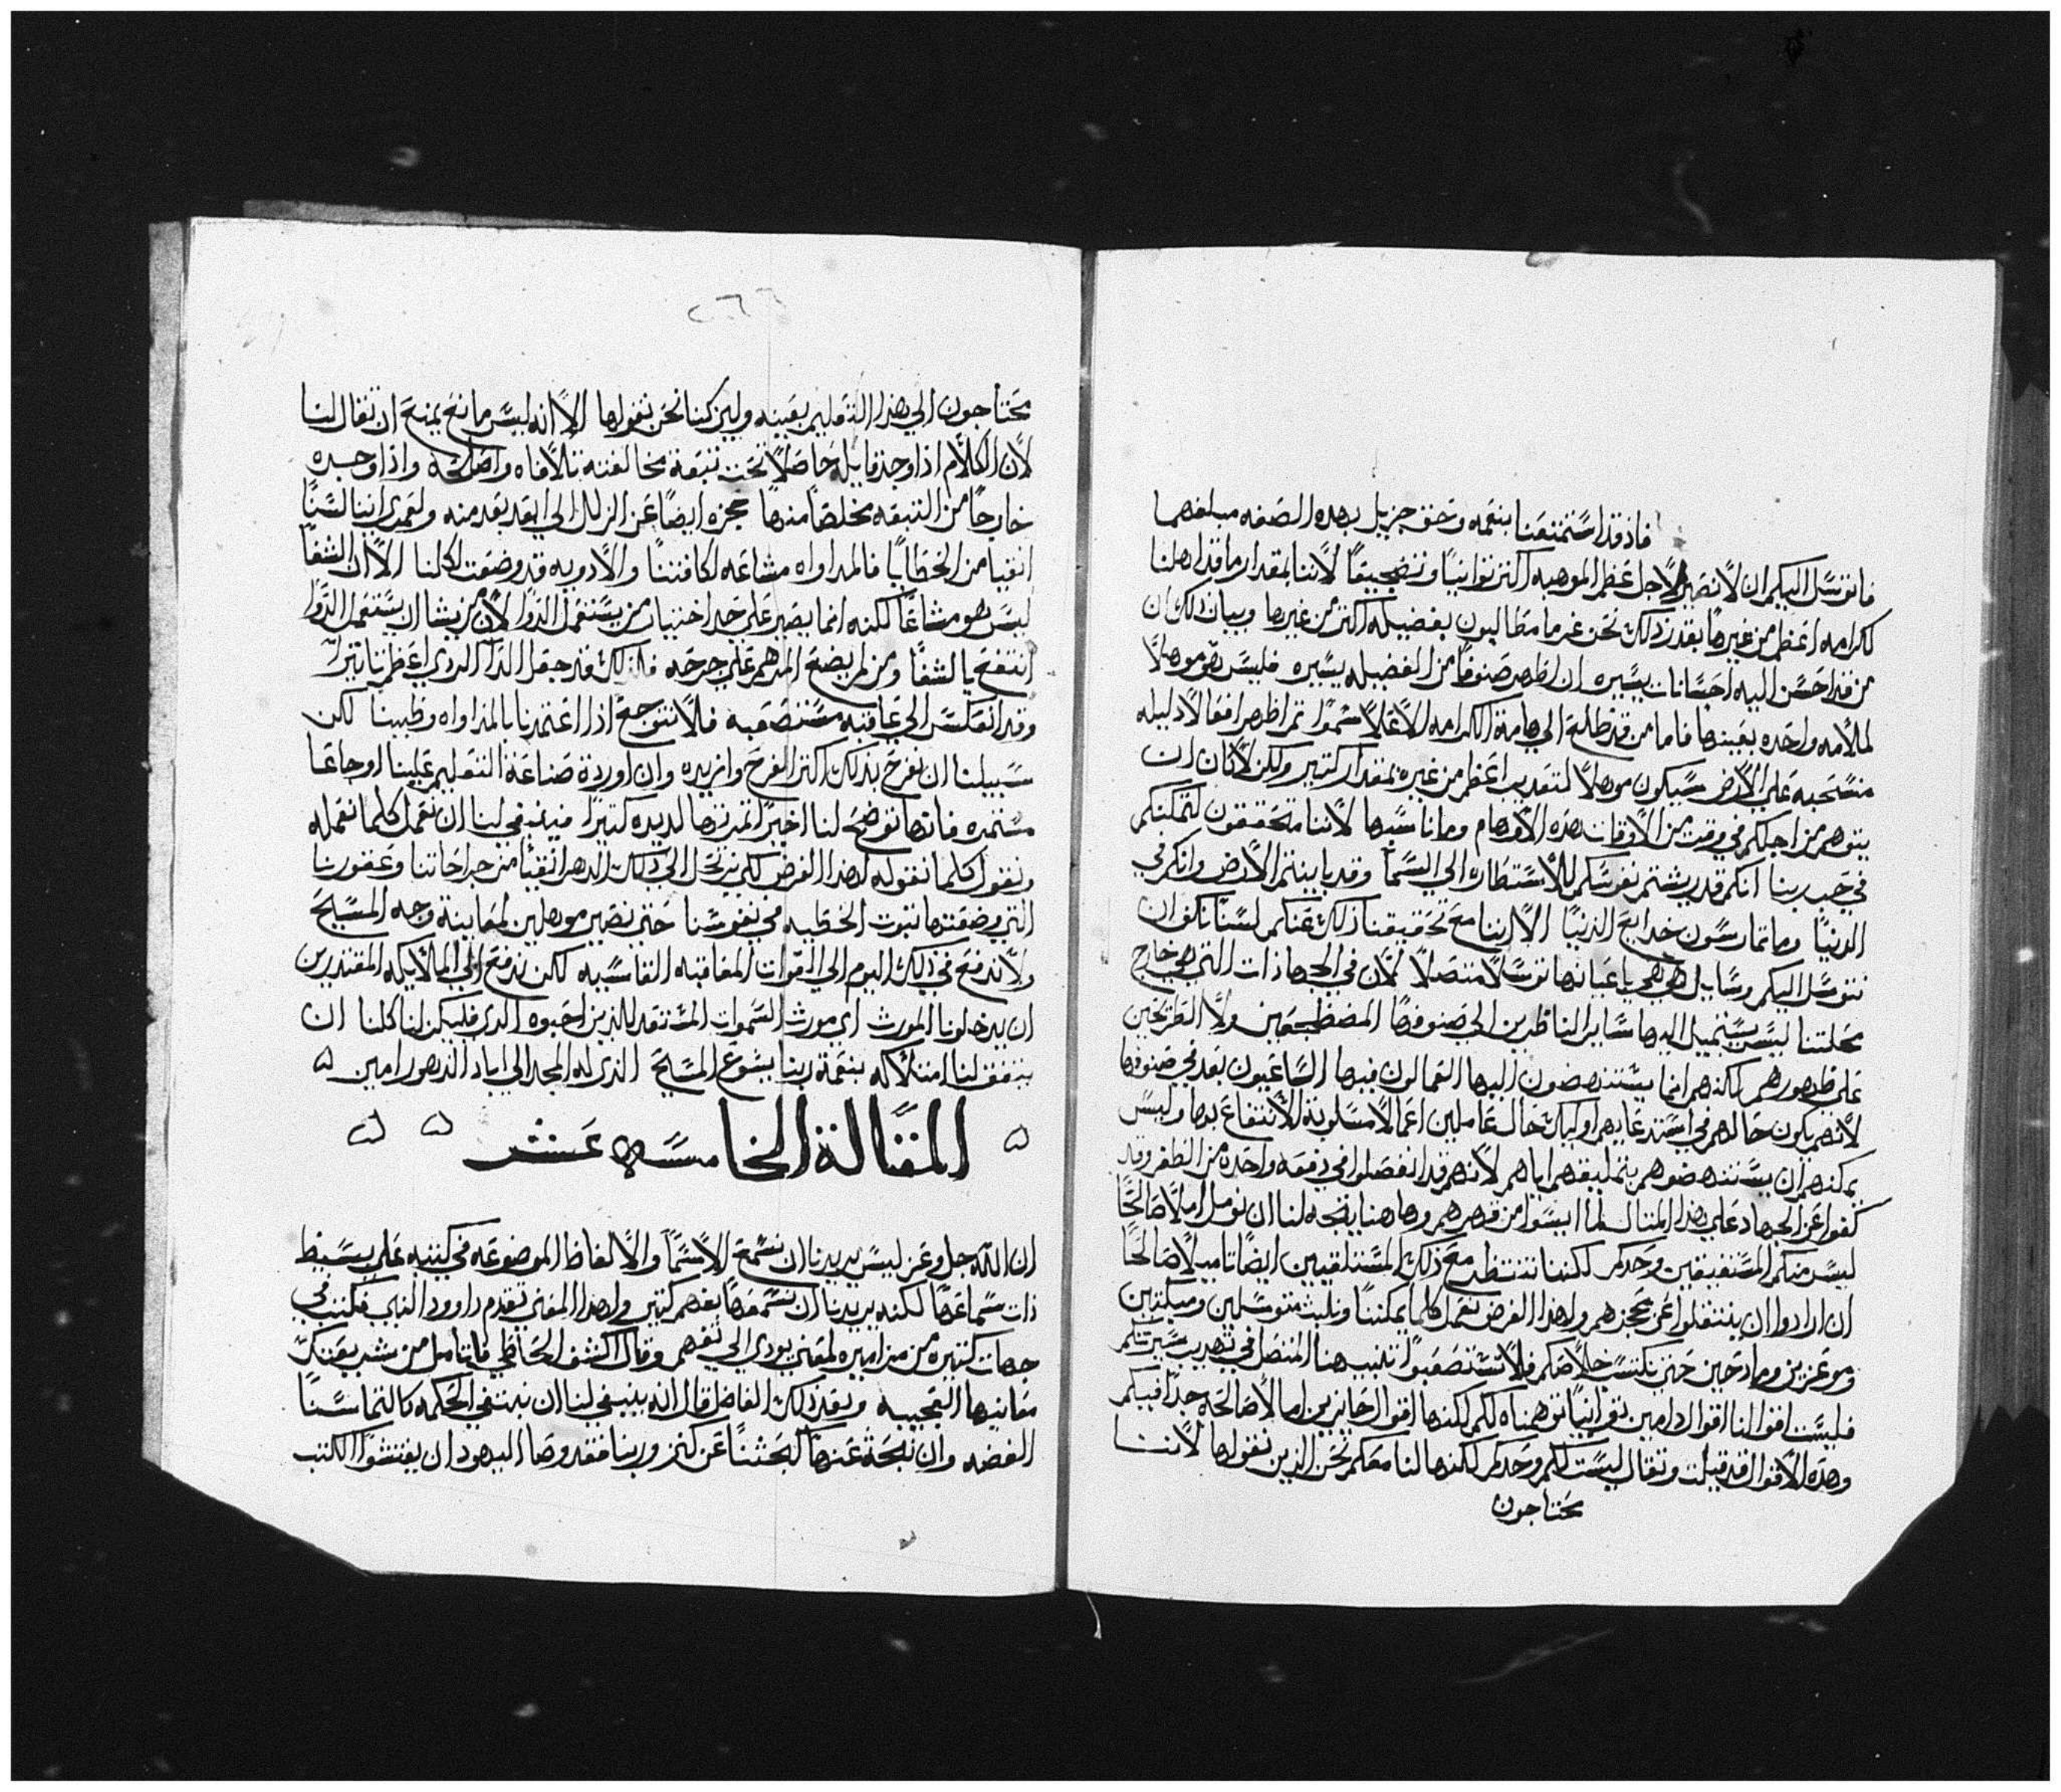 فاذ قد استمتعنا بنعمه وحق جزيل بهذه الصفه مبلغهما
فانوسل اليكم ان لا نصير لاجل عظم الموهبه اكثر توانيًا وتضجيعًا لاننا بمقدار ما قد اهلنا
لكرامه اعظم من غيرها بقدر ذلك نحن غرما مطالبون بفضيله اكثر من غيرها وبيان ذلك ان
من قد احسن اليه احسانات يسيره ان اظهر صنوفًا من الفضيله يسيره فليس هو موهلًا
لملامه واحده بعينها فاما من قد طلع الي هامة الكرامه الاعلا سموًا ثم اظهر افعالا ذليله
منسحبه علي الارض سيكون موهلًا لتعذيب اعظم من غيره بمقدار كثير ولكن لا كان ان
يتوهم من اجلكم في وقت من الاوقات هذه الاوهام وما ناسبها لاننا متحققون لتمكنكم
في حب ربنا انكم قد ريشتم نفوسكم للاستطاره الي السما وقد باينتم الارض وانكم في
الدنيا وما تمارسون خدايع الدنيا الا اننا مع تحقيقنا ذلك عنكم لسنا نكف ان
نتوسل اليكم وسايل هي هي باعيانها توسلًا متصلًا لان في الجهادات التي هي خارج
محلتنا ليس يستميل اليها ساير الناظرين الي صنوفها المضطجعين ولا الطريحين
علي ظهورهم لكنهم انما يستنهضون اليها العمالون فيها الساعيون بعد في صنوفها
لانهم يكون حالهم في استدعايهم اوليك حال عاملين اعمالا مسلوبة الانتفاع بها وليس
يمكنهم ان يستنهضوهم بتمليقهم اياهم لانهم قد انفصلوا في دفعه واحده من الظفر وقد
كفوا عن الجهاد علي هذا المثال لما ايسوا من قهرهم وهاهنا يتجه لنا ان نومل املًا صالحًا
ليس منكم المستفيقين وحدكم لكننا ننتظر مع ذلك المستلقيين ايضًا تاميلًا صالحًا
ان ارادوا ان ينتقلوا عن عجزهم ولهذا الغرض نعمل كلما يمكننا ونلبث متوسلين ومبكتين
وموعزين ومادحين حتي نكتسب خلاصكم فلا تستصعبوا تلبيبنا المتصل في تهذيب سيرتكم
فليست اقوالنا اقوال دامين توانيًا توهمناه لكم لكنها اقوال حايزين امالا صالحه جدًا فيكم
وهذه الاقوال قد قيلت وتقال ليست لكم وحدكم لكنها لنا معكم نحن الذين نقولها لاننا
محتاجون
٢٦٦
محتاجون الي هذا التعليم بعينه ولين كنا نحن نقولها الا انه ليس مانع يمنع ان تقال لنا
لان الكلام اذا وجد قابله حاصلًا تحت تبعة مخالفته تلافاه واصلحه واذا وجده
خارجًا من التبعه مخلصًا منها حجزه ايضًا عن الزلل الي ابعد بعد منه ولعمري اننا لسنا
انقيا من الخطايا فالمداواه مشاعه لكافتنا والادويه قد وضعت لكلنا الا ان الشفا
ليس هو مشاعًا لكنه انما يصير علي حد اختيار من يستعمل الدوا لان من يشا ان يستعمل الدوا
انتفع بالشفا ومن لم يضع المرهم علي جرحه فلذلك قد جعل الدا الردي اعظم تاثيرًا
وقد انعكس الي عاقبه مستصعبه فلا نتوجع اذا اعتمدنا بالمداواه وطبنا لكن
سبيلنا ان نفرح بذلك اكثر الفرح وازيده وان اوردة صناعة التعليم علينا اوجاعًا
مستمره فانها توضح لنا اخيرًا ثمرتها لذيذه كثيرًا فينبغي لنا ان نعمل كلما نعمله
ونقول كلما نقوله لهذا الغرض لكي نرتحل الي ذلك الدهر انقيا من جراحاتنا وعقورنا
التي وضعتها نيوب الخطيه في نفوسنا حتي نصير موهلين لمعاينة وجه المسيح
ولا ندفع في ذلك اليوم الي القوات المعاقبه القاسيه لكن ندفع الي الملايكه المقتدرين
ان يدخلونا المورث اي مورث السموات المستعد للذين احبوه الذي فليكن لنا كلنا ان
يتفق لنا امتلاكه بنعمة ربنا يشوع المسيح الذي له المجد الي اباد الدهور امين ۵
۵ المقالة الخامسه عشر ۵ ۵
ان الله جل وعز ليس يريدنا ان نسمع الاسما والالفاظ الموضوعه في كتبه علي بسيط
ذات سماعها لكنه يريدنا ان نسمعها بفهم كثير ولهذا المعني تقدم داوود النبي فكتب في
جهات كثيره من مزاميره لمعني يودي الي تفهم وقال اكشف الحاظي فاتامل من شريعتك
معانيها العجيبه وبعد ذلك الفاضل قال انه ينبغي لنا ان نبتغي الحكمه كالتماسنا
الفضه وان نبحث عنها كبحثنا عن كنز وربنا فقد وصا اليهود ان يفتشوا الكتب